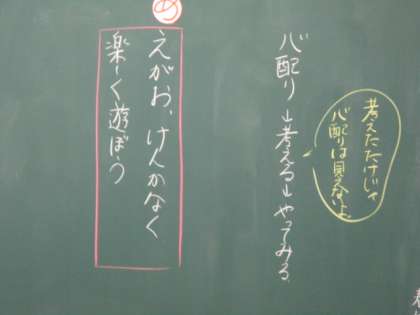 考えただけじゃ
心配りは見えないよ。
心配り→考える→やってみる
め
えがお、けんかなく
楽しく遊ぼう